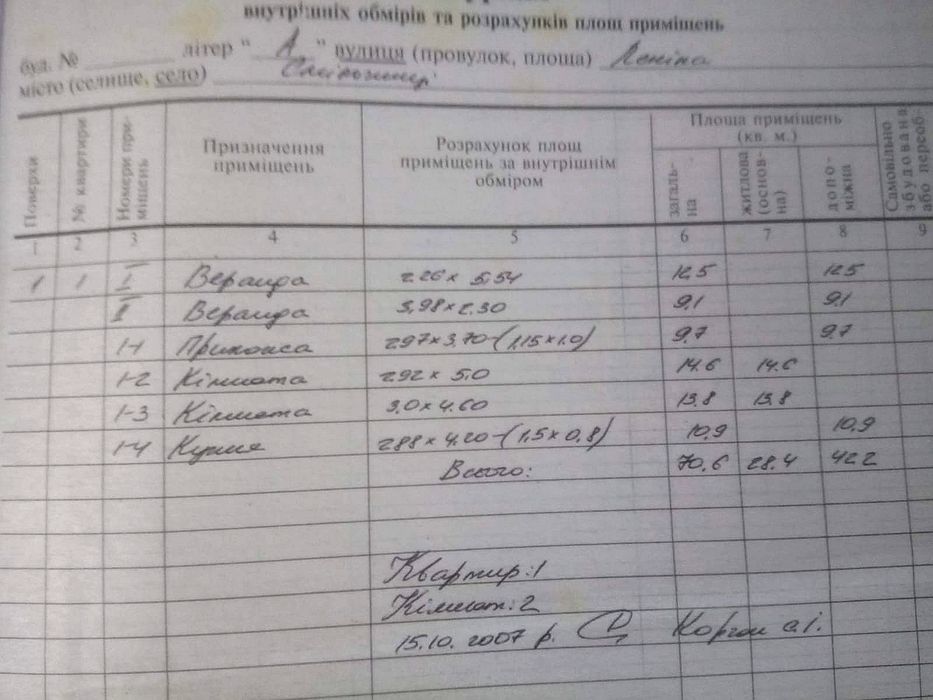 внутрішніх обмірів та розрахунків площ приміщень
буд. № літер " А " вулиця (провулок, площа) Леніна
місто (селище, село)
Поверхи № квартири Номери при-міщень Призначення приміщень Розрахунок площ приміщень за внутрішнім обміром Площа приміщень (кв. м.) загаль-на житлова (основ-на) допо-міжна Самовільно збудована або переоб-
1 2 3 4 5 6 7 8 9
1 1 I Веранда 2.26 x 5,54 12,5 12,5
II Веранда 3,98 x 2.30 9,1 9,1
1-1 Прихожа 2.97 x 3,70 - (1,15 x 1.0) 9,7 9,7
1-2 Кімната 2.92 x 5.0 14.6 14.6
1-3 Кімната 3,0 x 4.60 13,8 13,8
1-4 Кухня 2.88 x 4.20 - (1,5 x 0,8) 10,9 10,9
Всього: 70,6 28.4 42.2
Квартир: 1
Кімнат: 2
15.10. 2007 р.